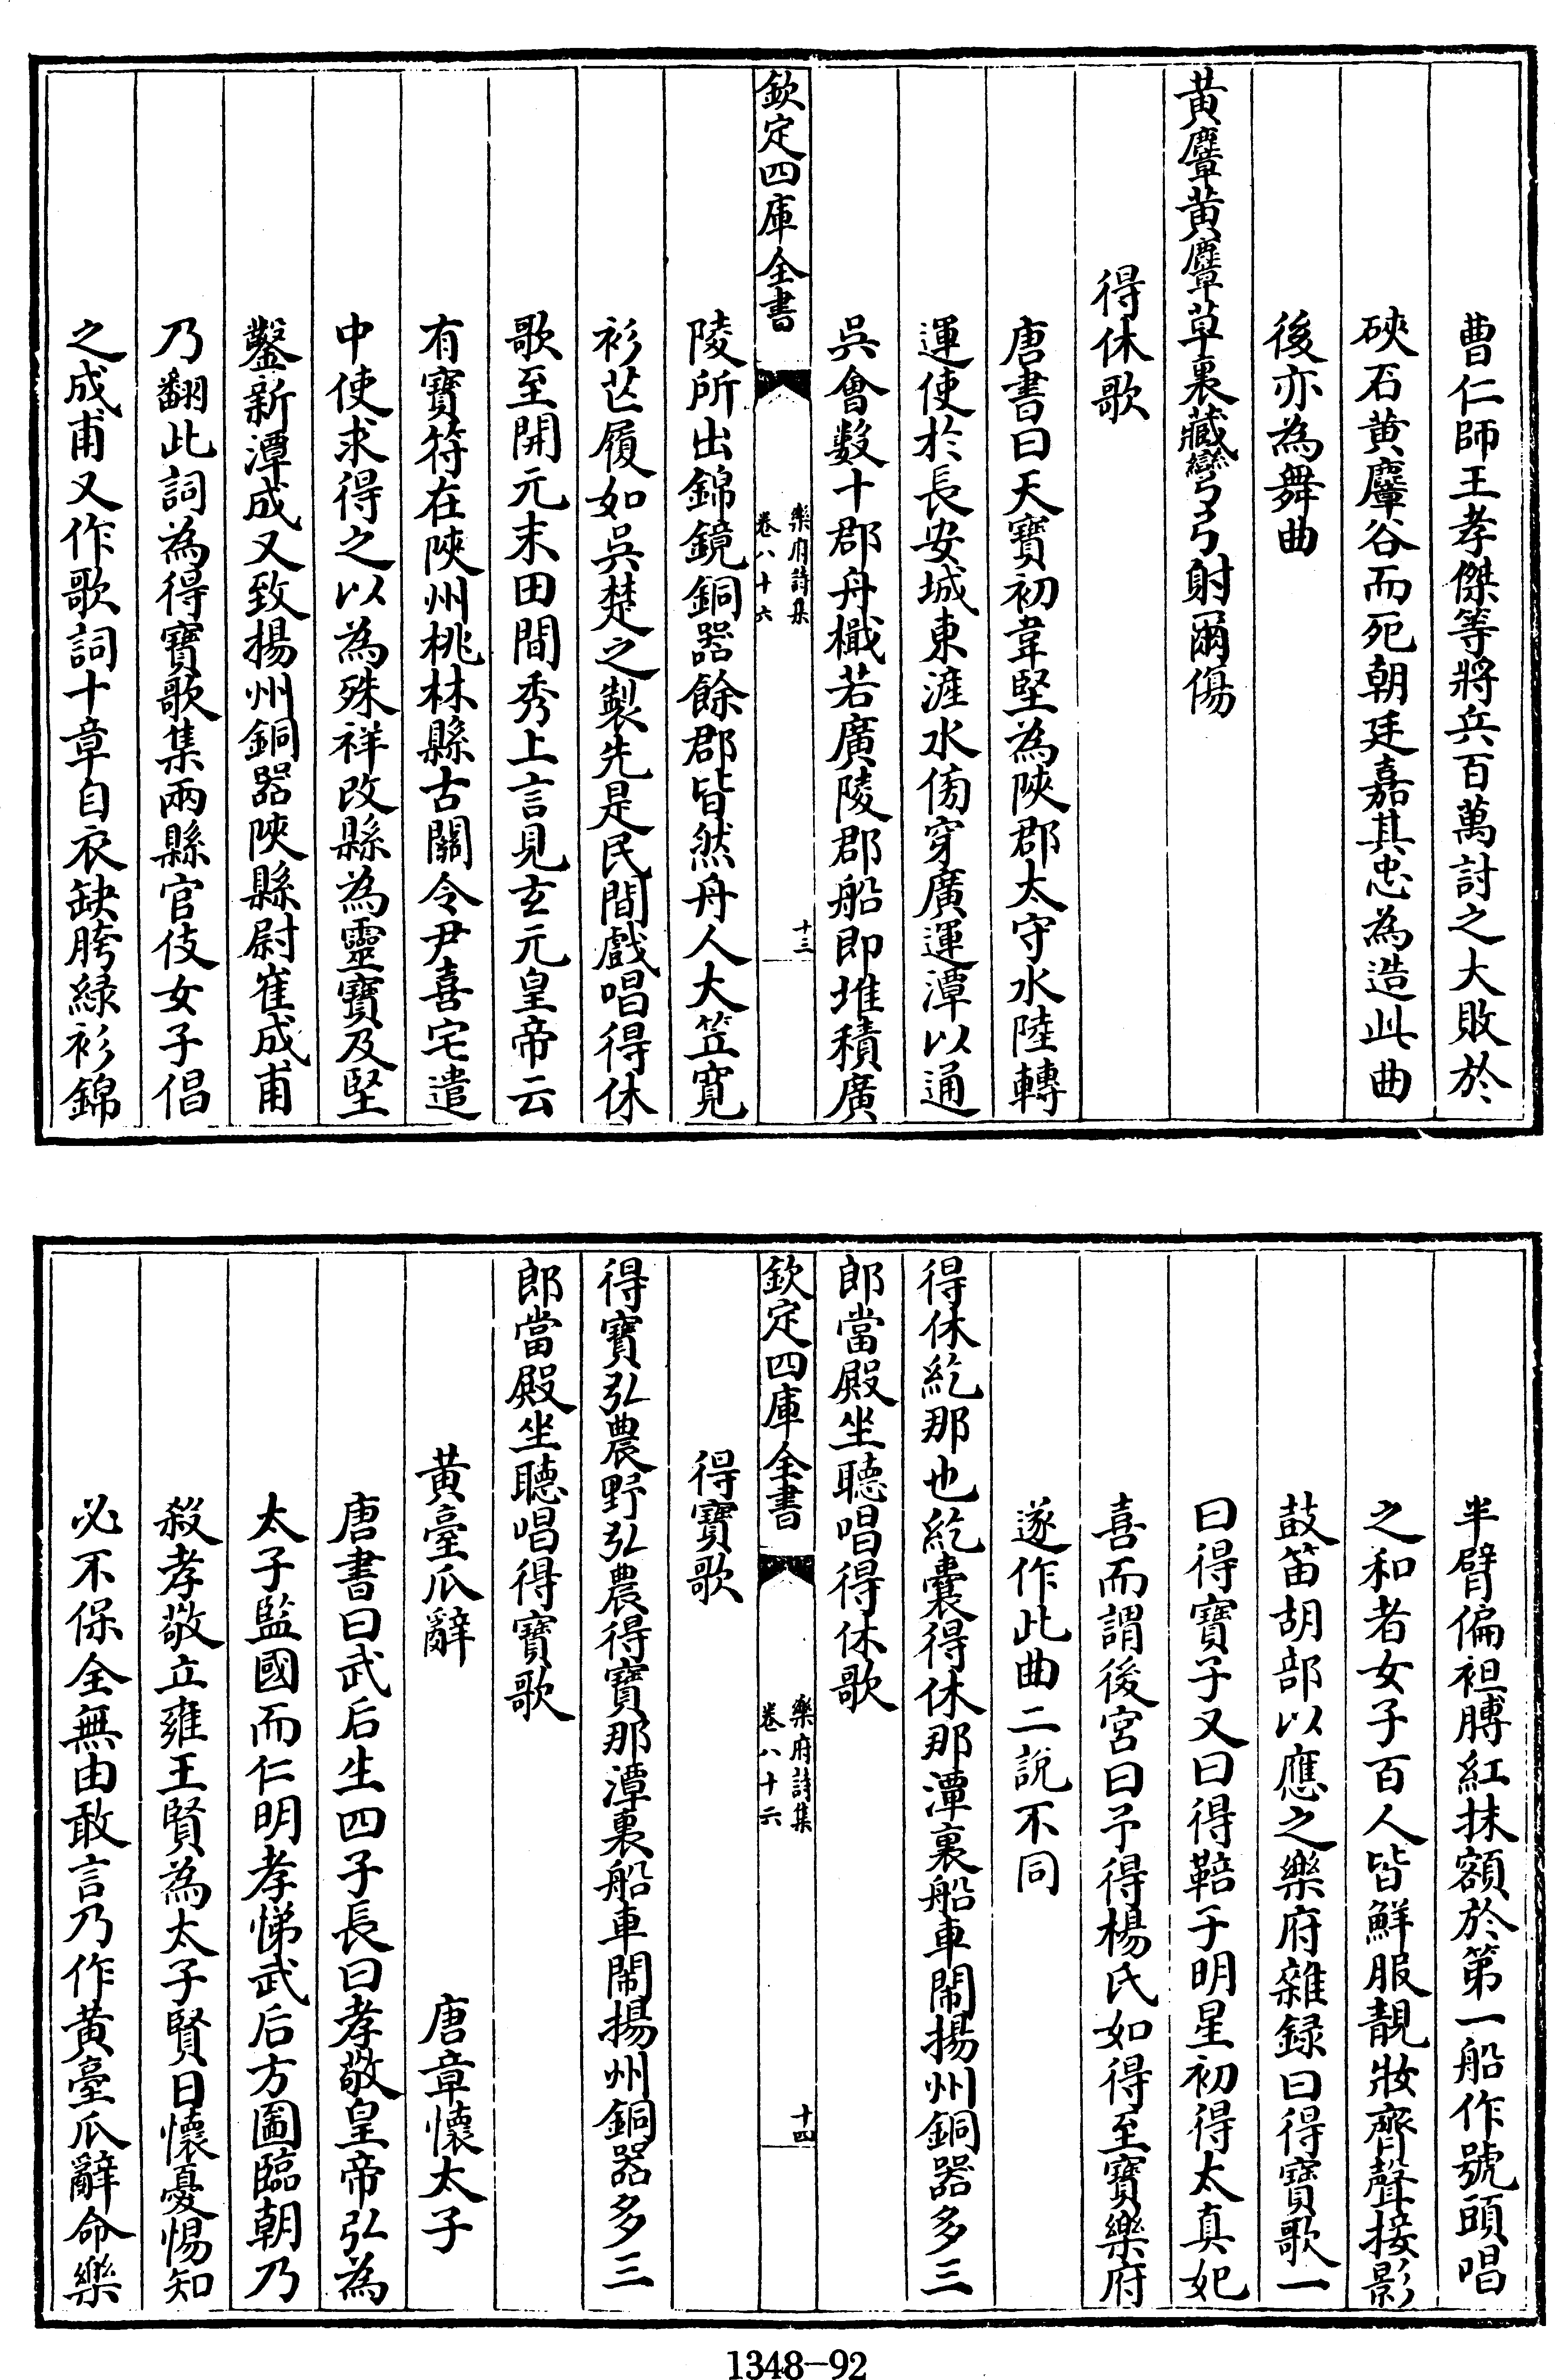 曹仁師王孝傑等將兵百萬討之大敗於
硤石黄麞谷而死朝廷嘉其忠為造此曲
後亦為舞曲
黄麞黄麞草裏藏彎弓弓射爾傷
得休歌
唐書曰天寶初韋堅為陝郡太守水陸轉
運使於長安城東滻水傍穿廣運潭以通
吳會數十郡舟檝若廣陵郡船即堆積廣
欽定四庫全書
樂府詩集
卷八十六
十三
陵所出錦鏡銅器餘郡皆然舟人大笠寛
衫芒履如吳楚之製先是民間戲唱得休
歌至開元末田間秀上言見玄元皇帝云
有寶符在陝州桃林縣古關令尹喜宅遣
中使求得之以為殊祥改縣為靈寶及堅
鑿新潭成又致揚州銅器陝縣尉崔成甫
乃翻此詞為得寶歌集兩縣官伎女子倡
之成甫又作歌詞十章自衣缺胯緑衫錦
半臂偏袒膊紅抹額於第一船作號頭唱
之和者女子百人皆鮮服靚妝齊聲接影
鼓笛胡部以應之樂府雜録曰得寶歌一
曰得寶子又曰得鞛子明星初得太真妃
喜而謂後宮曰予得楊氏如得至寶樂府
遂作此曲二說不同
得休紇那也紇囊得休那潭裏船車閙揚州銅器多三
郎當殿坐聽唱得休歌
欽定四庫全書
樂府詩集
卷八十六
十四
得寶歌
得寶弘農野弘農得寶那潭裏船車閙揚州銅器多三
郎當殿坐聽唱得寶歌
黄臺瓜辭 唐章懷太子
唐書曰武后生四子長曰孝敬皇帝弘為
太子監國而仁明孝悌武后方圖臨朝乃
殺孝敬立雍王賢為太子賢日懷憂惕知
必不保全無由敢言乃作黄臺瓜辭命樂
1348-92